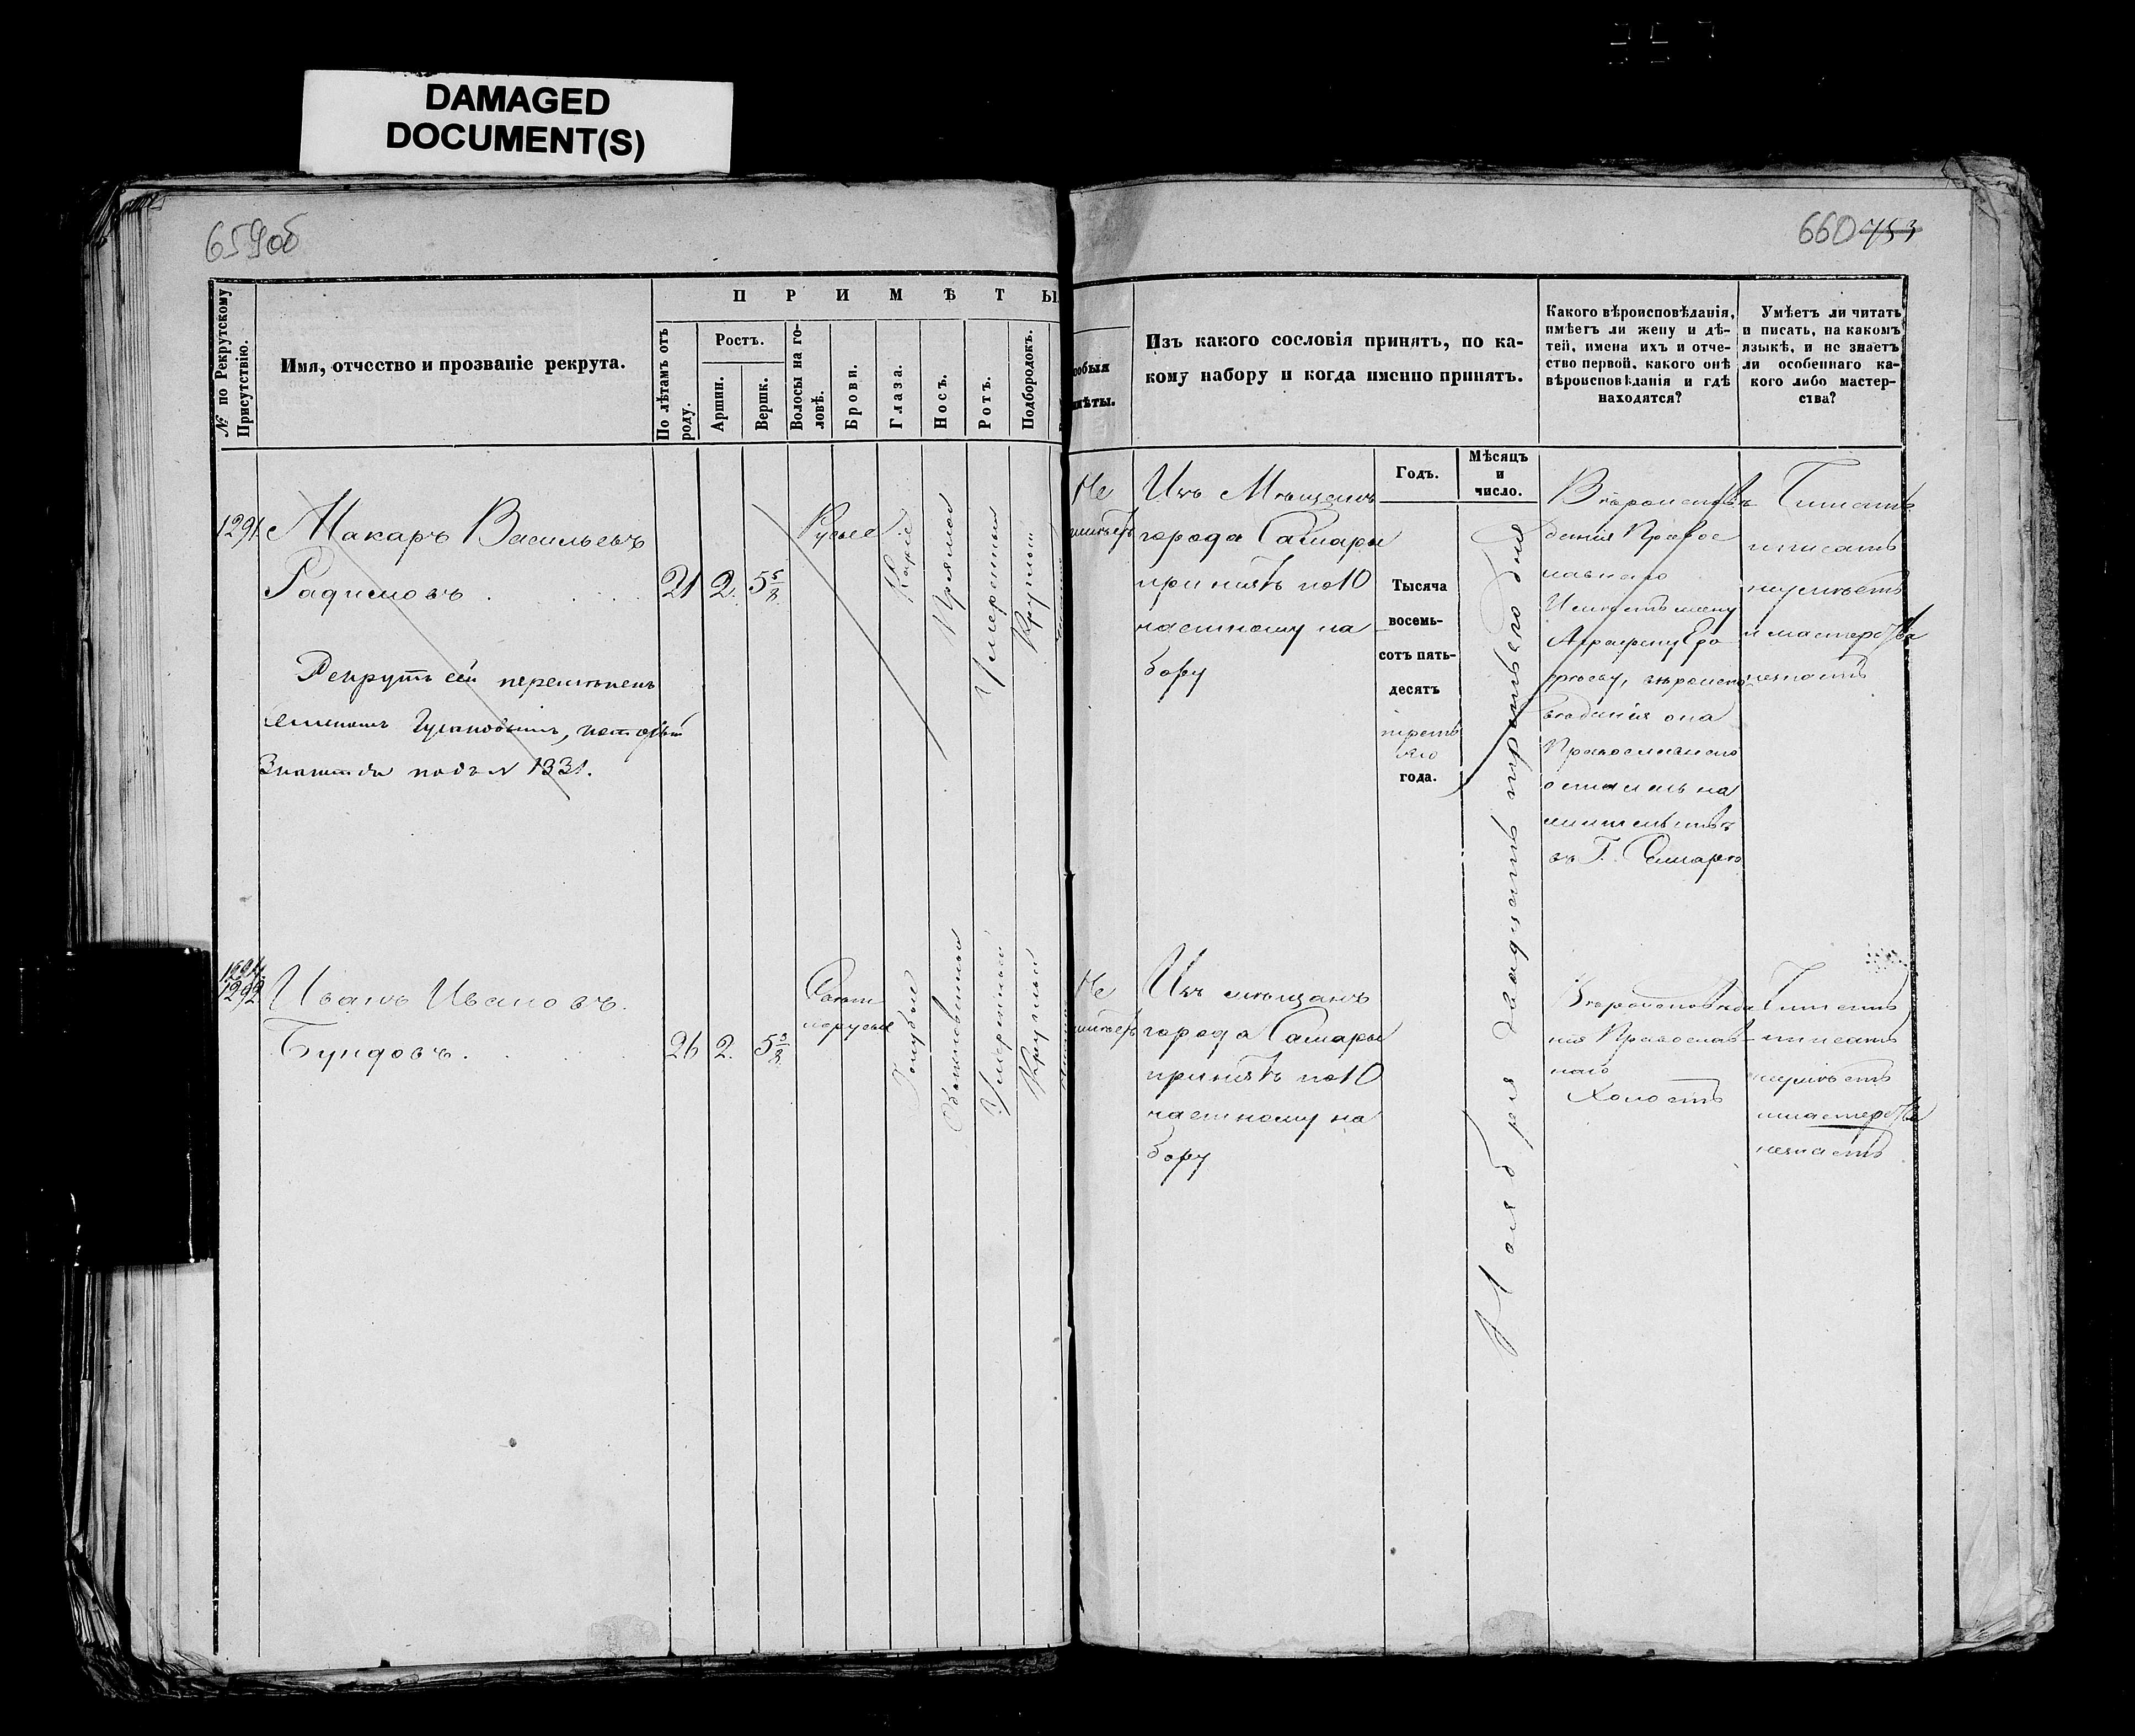 DAMAGED
DOCUMENT(S)
659об
660 753
№ по Рекрутскому
Присутствію.
Имя, отчество и прозваніе рекрута.
ПРИМѢТЫ
По лѣтамъ отъ
роду.
Ростъ.
Аршин.
Вершк.
Волосы на го-
ловѣ.
Брови.
Глаза.
Носъ.
Ротъ.
Подбородокъ.
обыя
мѣты.
Изъ какого сословія принятъ, по ка-
кому набору и когда именно принятъ.
Какого вѣроисповѣданія,
имѣетъ ли жену и дѣ-
тей, имена ихъ и отче-
ство первой, какого онѣ
вѣроисповѣданія и гдѣ
находятся?
Умѣетъ ли читать
и писать, на какомъ
языкѣ, и не знаетъ
ли особеннаго ка-
кого либо мастер-
ства?
Годъ.
Мѣсяцъ
и
число.
1291.
Макаръ Васильевъ
Радионовъ
21 2. 5 5/8
Русые
Каріе
Прямой
Умеренный
Круглый
Рекрутъ сей перемѣненъ
подъ № 1331.
Не
имѣетъ
Изъ Мѣщанъ
города Самары
принятъ по 10
частному на
бору
Тысяча
восемь-
сотъ пять-
десятъ
треть
яго
года.
Ноября двадцать четвертаго дня
Вѣроисповѣ
данія Правос
лавнаго
Имѣетъ жену
Аграфену Его
рову, вѣроиспо
вѣданія она
Православнаго
осталась на
жительствѣ
въ Г. Самарѣ
Читать
и писать
неумѣетъ
и мастерства
незнаетъ
1292
Иванъ Ивановъ
Бундовъ.
26 2. 5 3/8
Светло
русые
Голубые
Обыкновенный
Умеренный
Круглый
Не
имѣетъ
Изъ мѣщанъ
города Самары
принятъ по 10
частному на
бору
Вѣроисповѣда
нія Православ
наго
Холостъ
Читать
и писать
неумѣетъ
и мастерства
незнаетъ